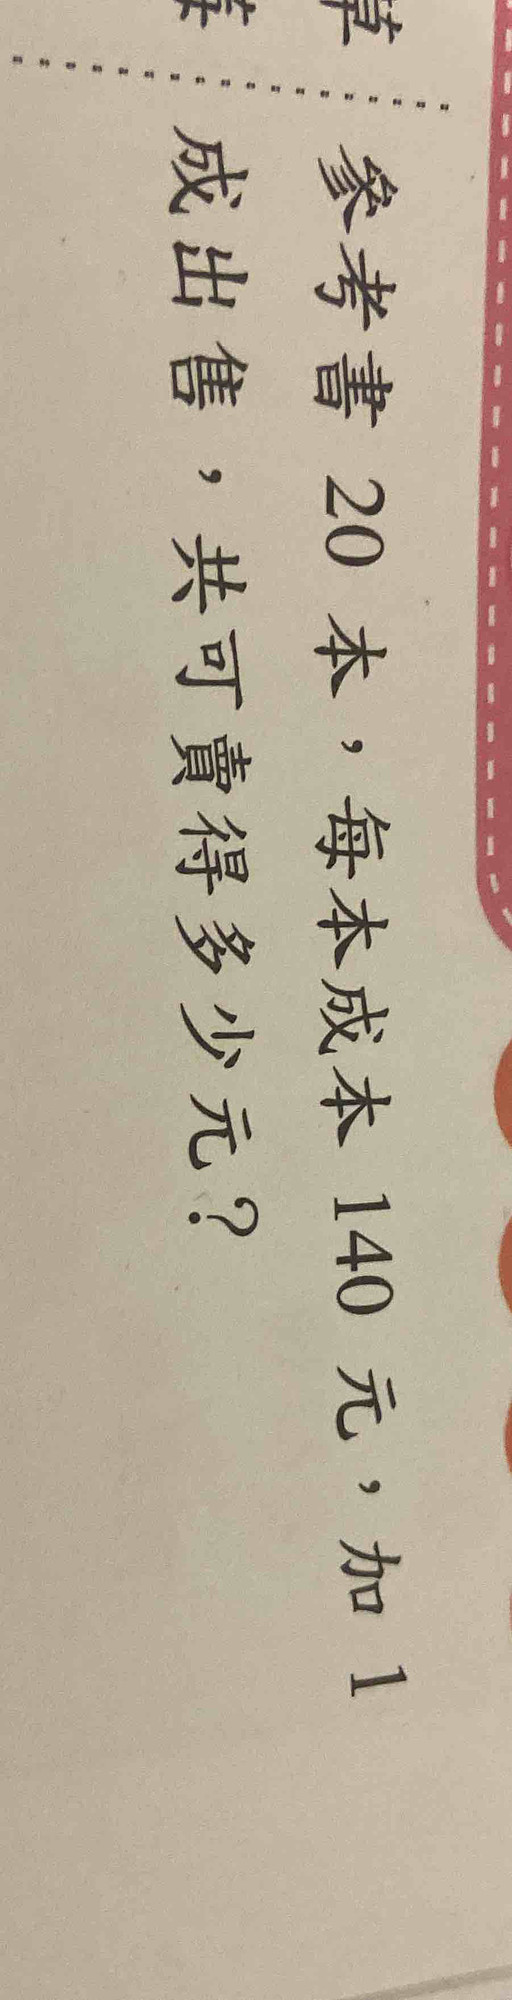 參考書 20 本，每本成本 140 元，加 1
成出售，共可賣得多少元？